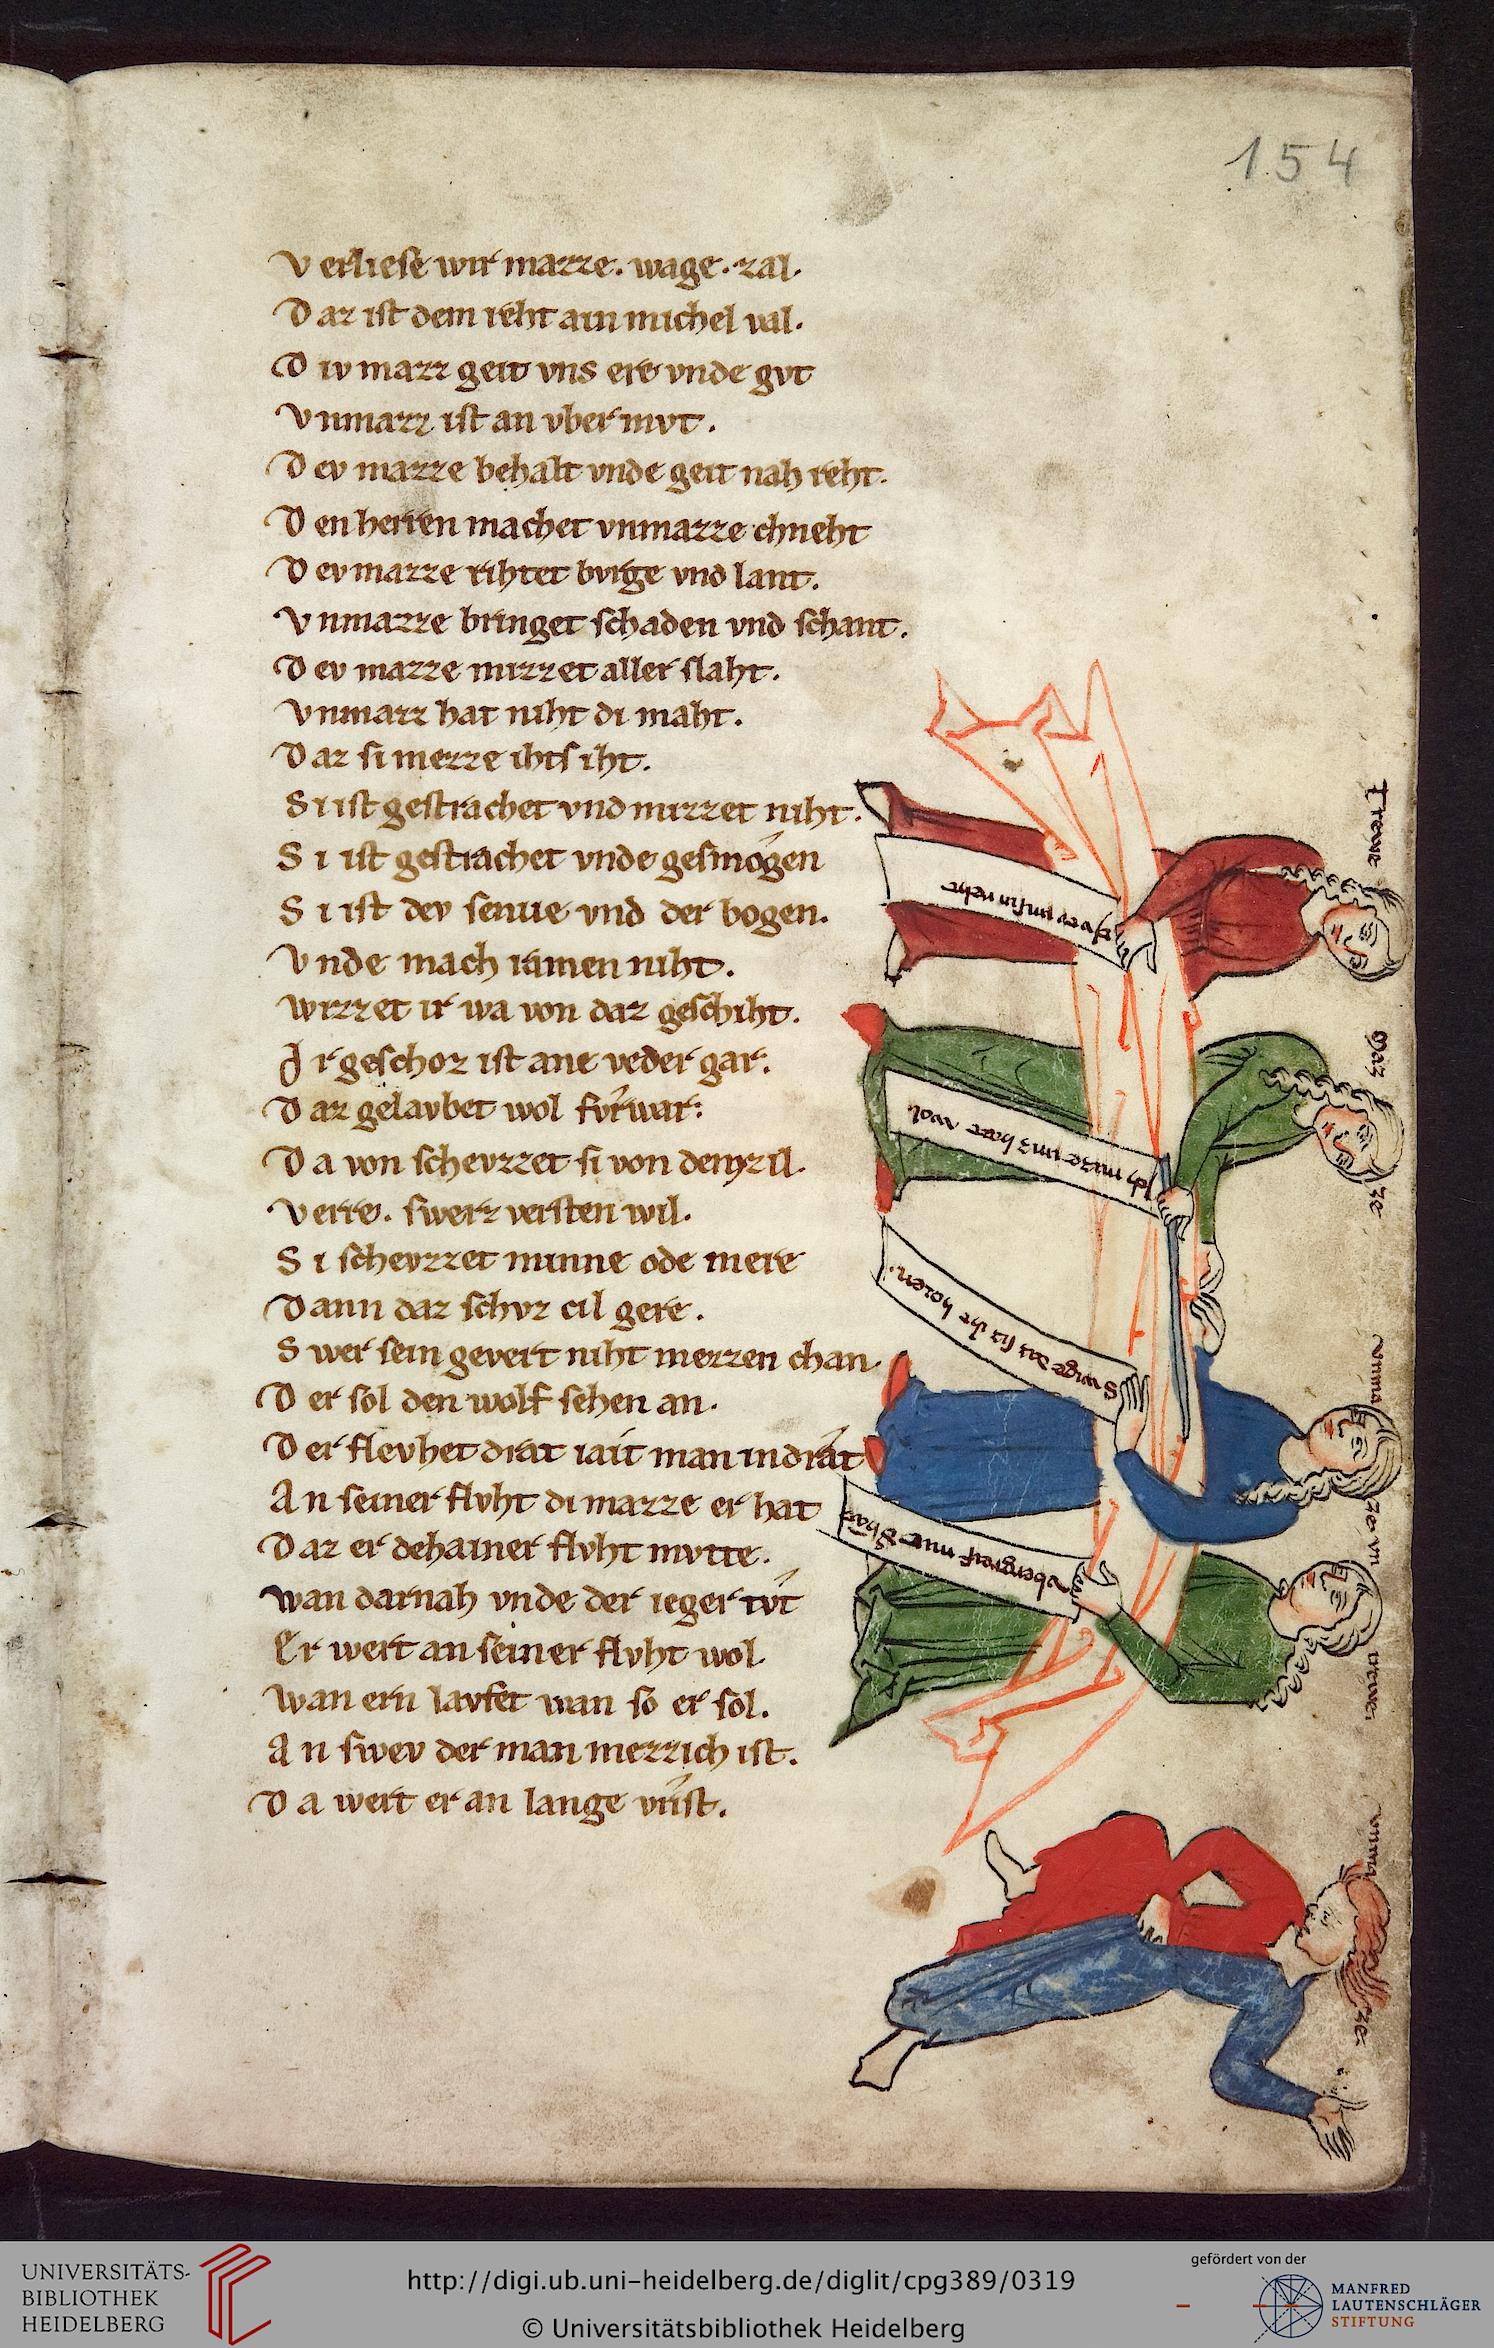 154
V erliese wir mazze. wage. zal.
D az ist dem reht ain michel val.
D iv mazz geit vns ere vnde gvt
V nmazz ist an vber mvt.
D ev mazze behalt vnde geit nah reht.
D en herren machet vnmazze chneht
D ev mazze rihtet bvrge vnd lant.
V nmazze bringet schaden vnd schant.
D ev mazze nvzzet aller slaht.
V nmazz hat niht di maht.
D az si mezze ihts iht.
S i ist gestrachet vnd mizzet niht.
S i ist gestrachet vnde gesmogen
S i ist dev senne vnd der bogen.
V nde mach ramen niht.
Wizzet ir wa von daz geschiht.
I r geschoz ist ane veder gar.
D az gelavbet wol fvrwar.
D a von schevzzet si von dem zil.
Verre. swerz versten wil.
S i schevzzet minne ode mere
D ann daz schvz cil gere.
S wer sein gevert niht mezzen chan.
D er sol den wolf sehen an.
D er flevhet drat iait man in drat
A n seiner flvht di mazze er hat
D az er dehainer flvht mvtte.
wan darnah vnde der ieger tvt
Er wert an seiner flvht wol
Wan ern lavfet wan so er sol.
A n swev der man mezzich ist.
D a wert er an lange vrist.
Trewe
Maz
ze
vnma
ze vn
trewe.
vnma
ze
UNIVERSITÄTS-
BIBLIOTHEK
HEIDELBERG
http://digi.ub.uni-heidelberg.de/diglit/cpg389/0319
© Universitätsbibliothek Heidelberg
gefördert von der
MANFRED
LAUTENSCHLÄGER
STIFTUNG